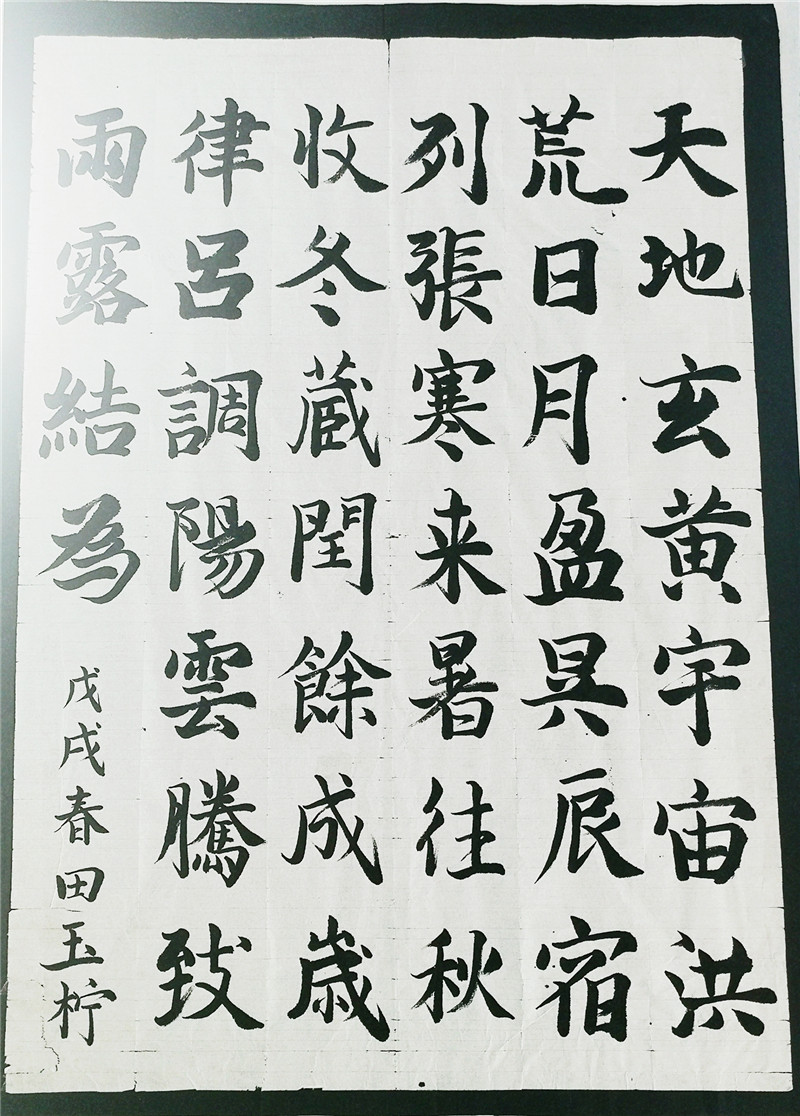 天地玄黄宇宙洪
荒日月盈昃辰宿
列張寒来暑往秋
收冬蔵閏餘成歳
律呂調陽雲騰致
雨露結為
戊戌春田玉柠